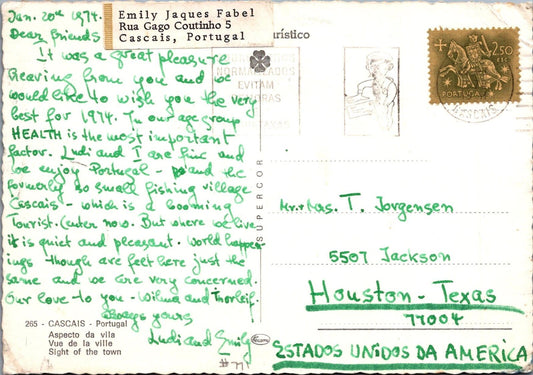 Jan. 20th 1974.
Emily Jaques Fabel
Rua Gago Coutinho 5
Cascais, Portugal
Dear friends
It was a great pleasure
hearing from you and we
would like to wish you the very
best for 1974. In our age group
HEALTH is the most important
factor. Ludi and I are fine and
we enjoy Portugal - and the
formerly so small fishing village
Cascais - which is a booming
Tourist Center now. But where we live
it is quiet and pleasant. World happen-
ings though are felt here just the
same and we are very concerned.
Our love to you - Wilma and Thorleif.
always yours
Ludi and Emily
265 - CASCAIS - Portugal
Aspecto da vila
Vue de la ville
Sight of the town
SUPERCOR
NORMALIZADOS
EVITAM
2$50
PORTUGAL
CASCAIS
Mr. + Mrs. T. Jorgensen
5507 Jackson
Houston - Texas
77004
ESTADOS UNIDOS DA AMERICA